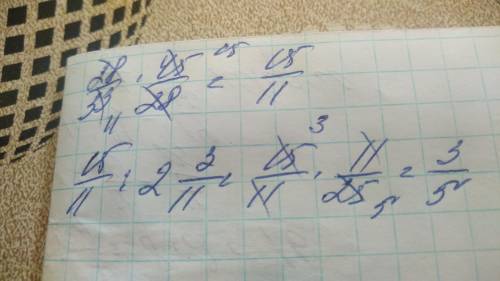 28/33 · 45/28 = 15/11
15/11 : 2 3/11 = 15/11 · 11/25 = 3/5